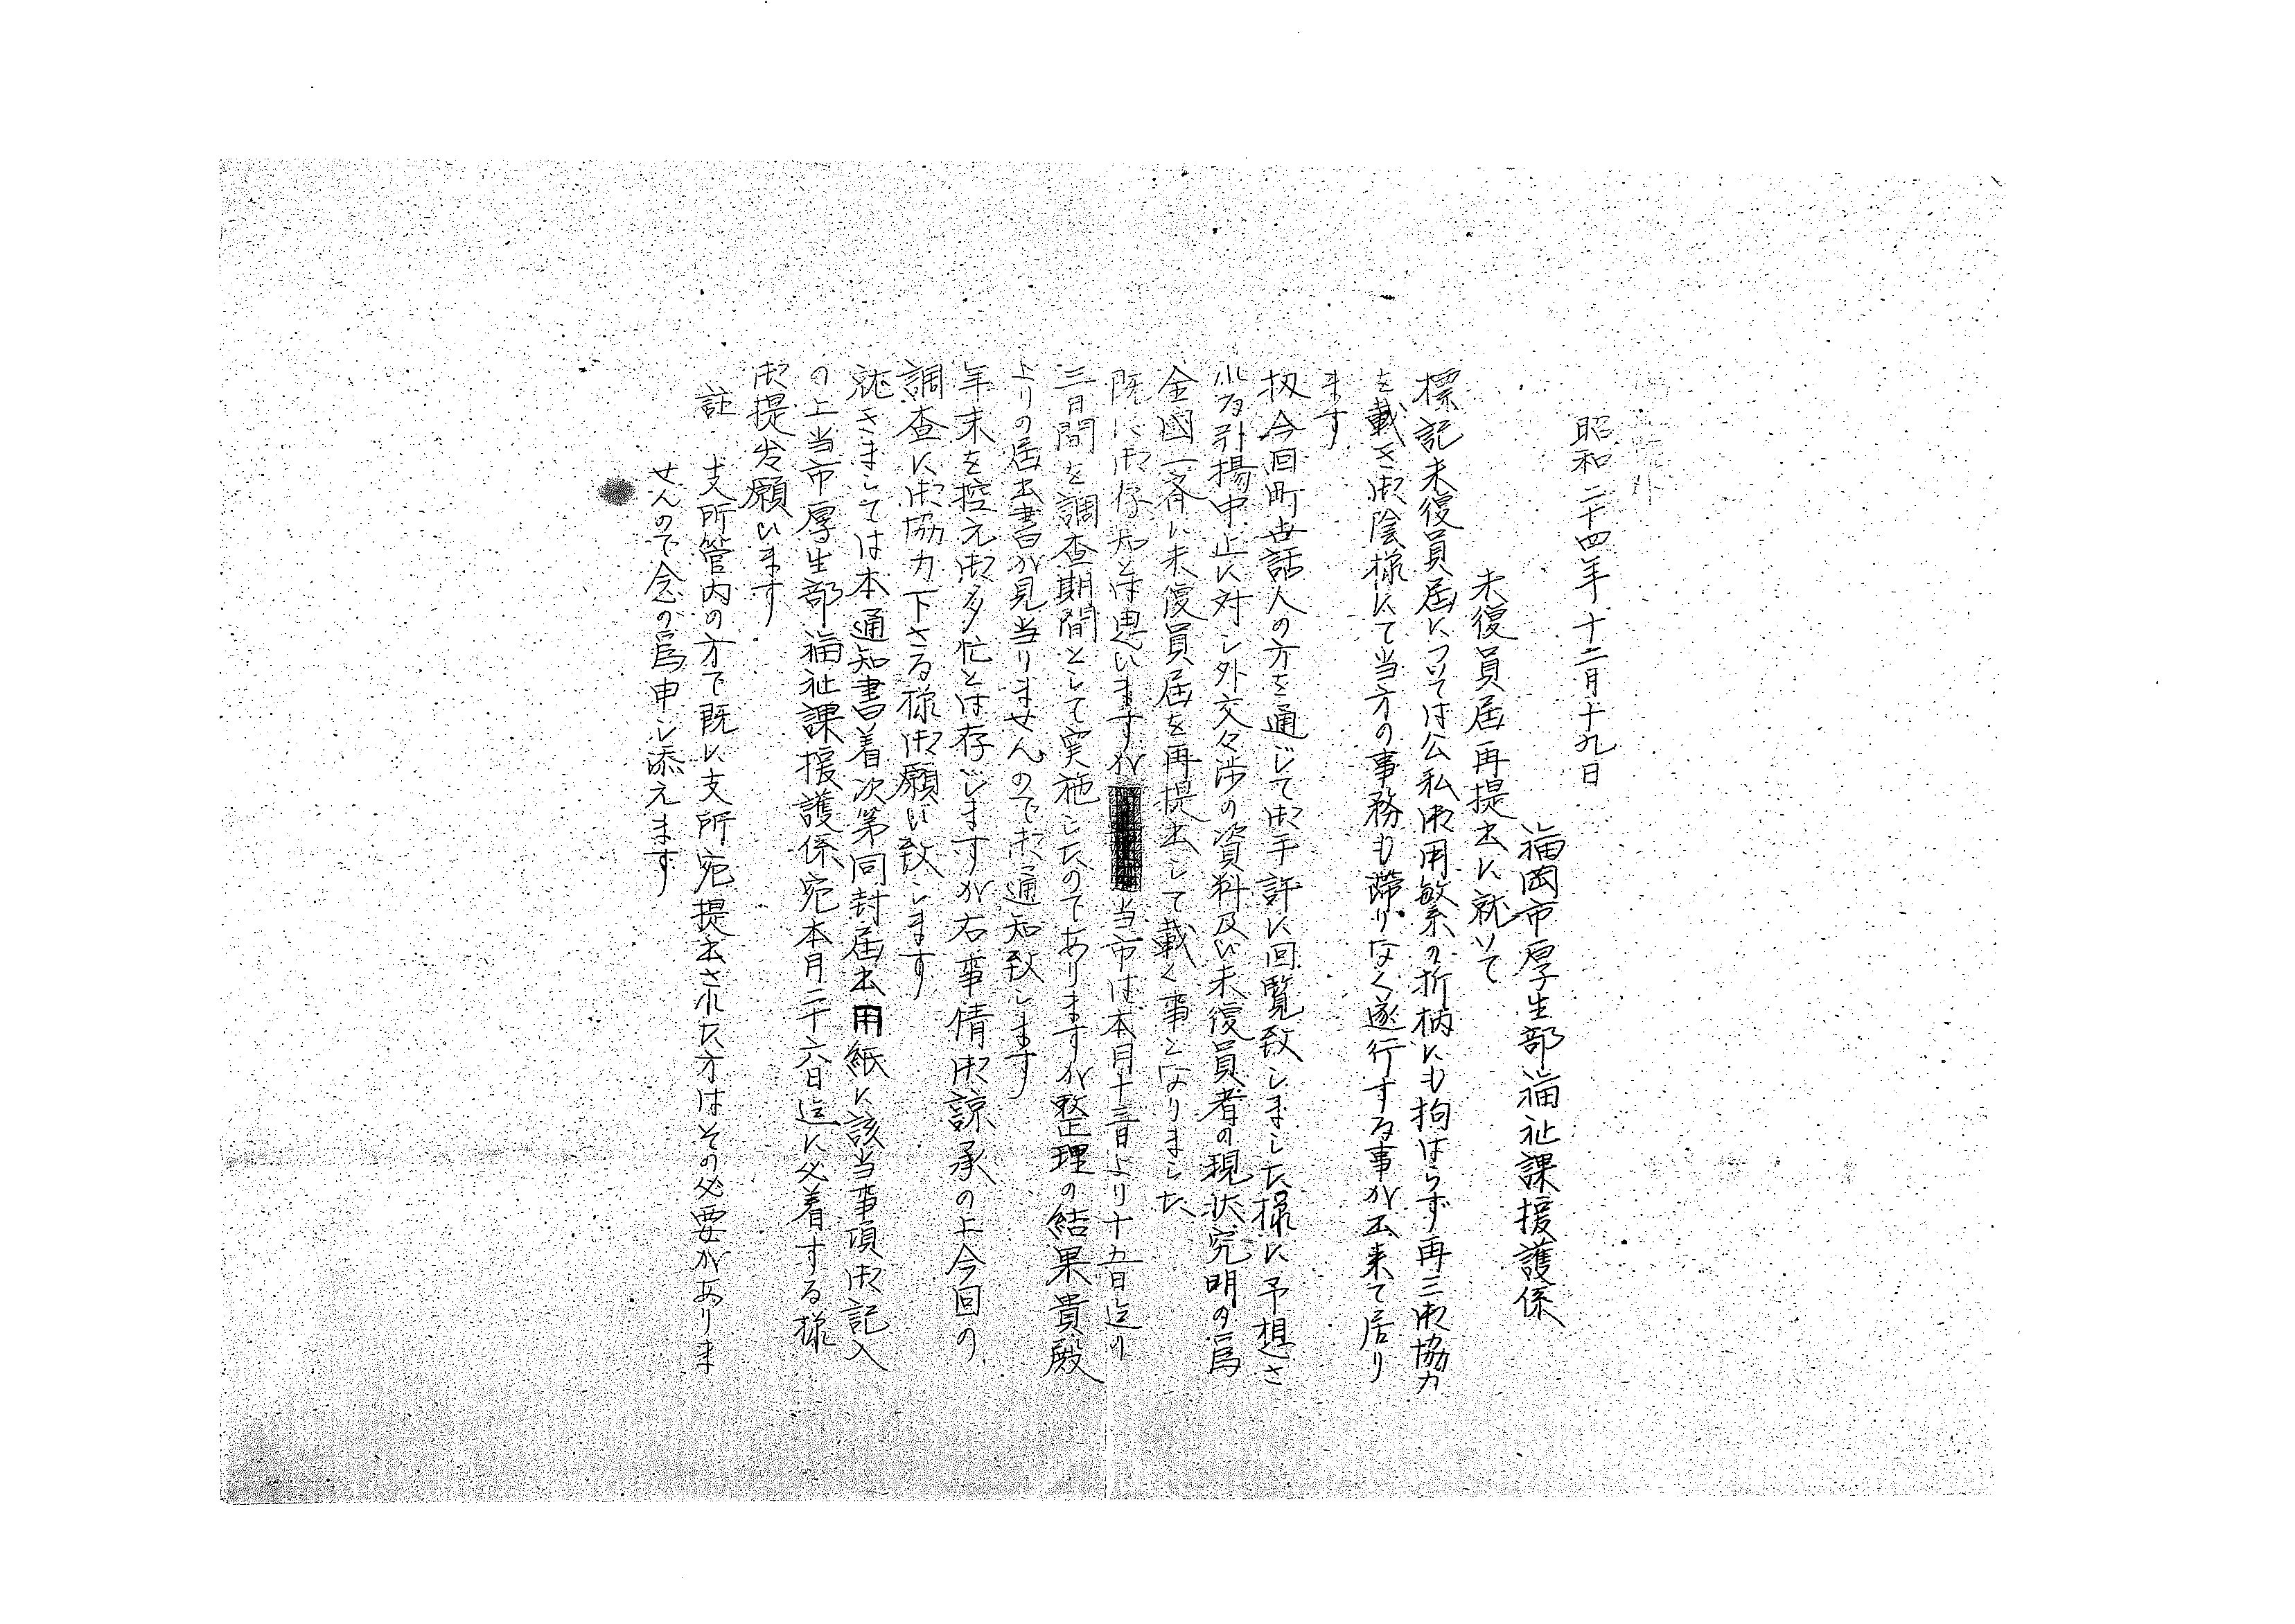 昭和二十四年十二月十九日
福岡市厚生部福祉課援護係
未復員届再提出に就いて
標記未復員届については公私御用繁多の折柄にも拘はらず再三御協力
を載き御陰様にて当方の事務も滞りなく遂行する事が出来て居り
ます
扨今回町世話人の方を通じて御手許に回覧致しました様に予想さ
れる引揚中止に対し外交々渉の資料及い未復員者の現状究明の為
全國一斉に未復員届を再提出して載く事となりました
既に御存知とは思いますが 当市は本月十三日より十五日迄の
三日間を調査期間として実施したのでありますが整理の結果貴殿
よりの届出書が見当りませんので御通知致します
年末を控え御多忙とは存じますが右事情御諒承の上今回の
調査に御協力下さる様御願い致します
就きましては本通知書着次第同封届出用紙に該当事項御記入
の上当市厚生部福祉課援護係宛本月二十六日迄に必着する様
御提出願います
註 支所管内の方で既に支所宛提出された方はその必要がありま
せんので念の為申し添えます